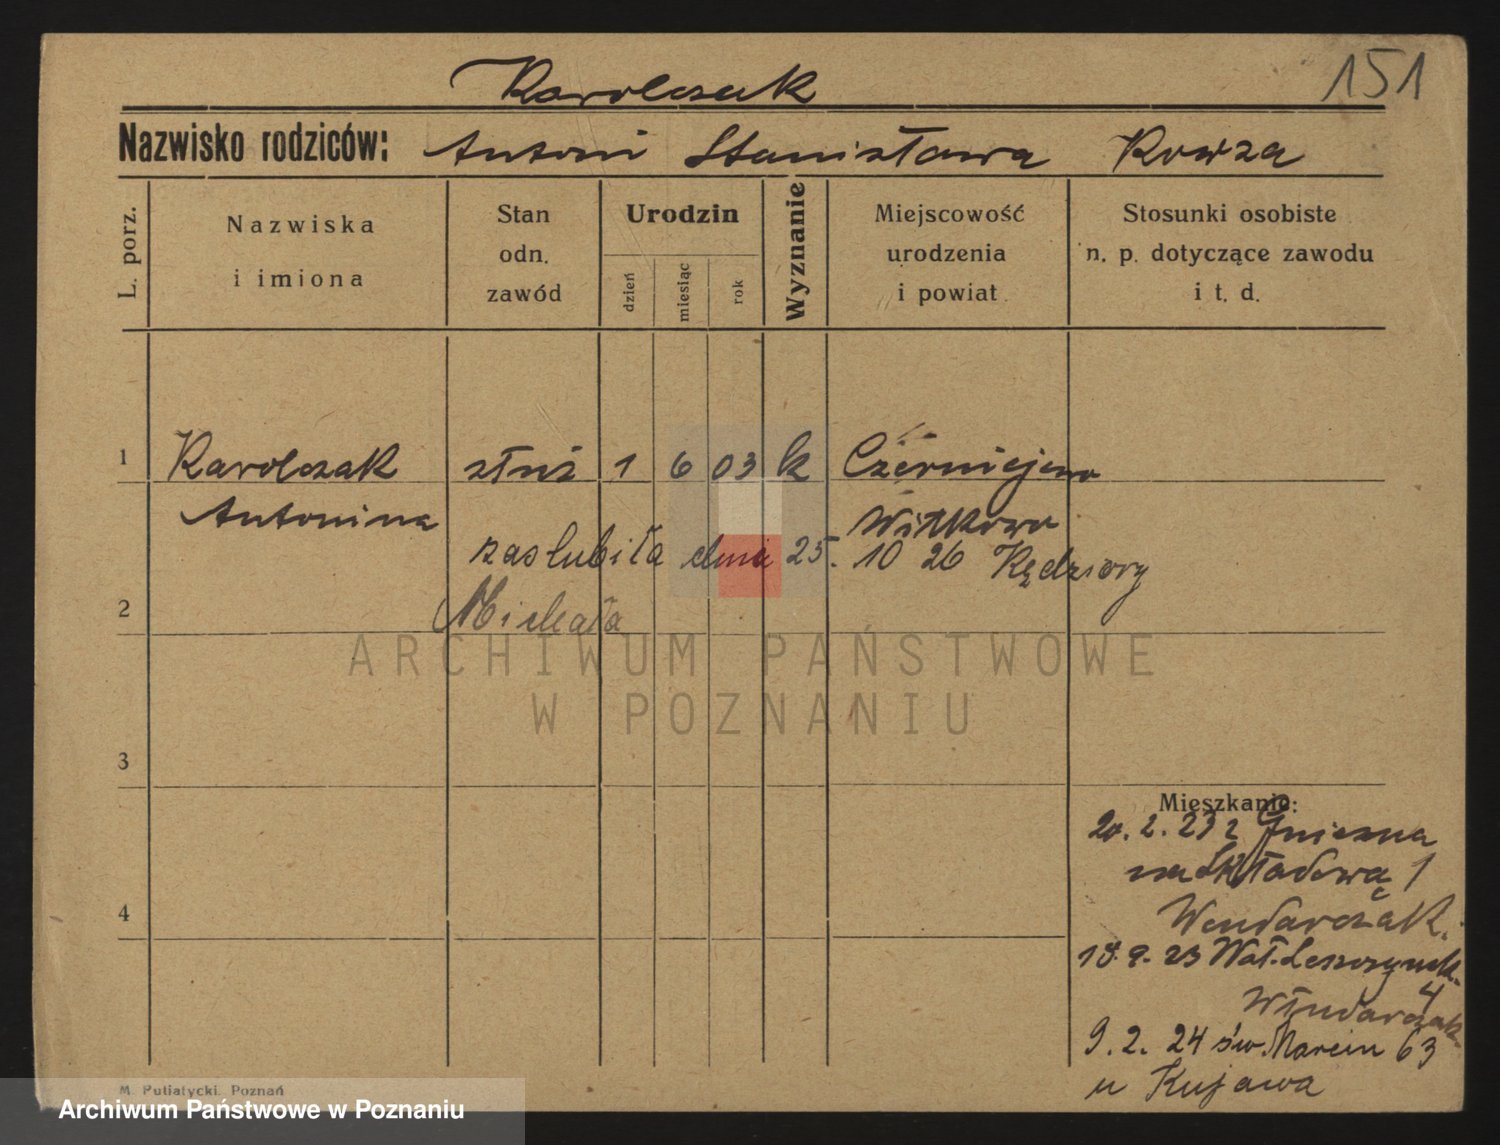 151
Karolczak
Nazwisko rodziców: Antoni Stanisława Kowza
L. porz.
Nazwiska
i imiona
Stan
odn.
zawód
Urodzin
dzień
miesiąc
rok
Wyznanie
Miejscowość
urodzenia
i powiat
Stosunki osobiste
n. p. dotyczące zawodu
i t. d.
1 Karolczak służ 1 6 03 k Czerniejewo
Antonina Witkowo
zaslubiła dnia 25. 10 26 Kędziory
2 Michała
ARCHIWUM PAŃSTWOWE
W POZNANIU
3
Mieszkanie:
20. 2. 23 z Gniezna
na Składową 1
4
18. 9. 23 Wał. Leszczynsk.
4
9. 2. 24 św. Marcin 63
u Kujawa
M. Putiatycki. Poznań
Archiwum Państwowe w Poznaniu